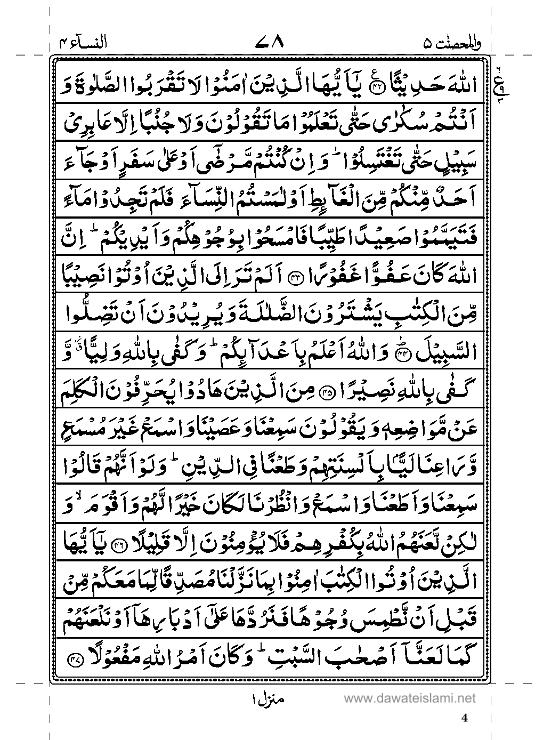 والمحصنت ۵ ۷۸ النسآء ۴
اللهَ حَدِیْثًا ۠﴿۴۲﴾ یٰۤاَیُّهَا الَّذِیْنَ اٰمَنُوْا لَا تَقْرَبُوا الصَّلٰوةَ وَ
اَنْتُمْ سُكٰرٰى حَتّٰى تَعْلَمُوْا مَا تَقُوْلُوْنَ وَلَا جُنُبًا اِلَّا عَابِرِیْ
سَبِیْلٍ حَتّٰى تَغْتَسِلُوْا ؕ وَ اِنْ كُنْتُمْ مَّرْضٰۤى اَوْ عَلٰى سَفَرٍ اَوْ جَآءَ
اَحَدٌ مِّنْكُمْ مِّنَ الْغَآىٕطِ اَوْ لٰمَسْتُمُ النِّسَآءَ فَلَمْ تَجِدُوْا مَآءً
فَتَیَمَّمُوْا صَعِیْدًا طَیِّبًا فَامْسَحُوْا بِوُجُوْهِكُمْ وَ اَیْدِیْكُمْ ؕ اِنَّ
اللهَ كَانَ عَفُوًّا غَفُوْرًا ﴿۴۳﴾ اَلَمْ تَرَ اِلَى الَّذِیْنَ اُوْتُوْا نَصِیْبًا
مِّنَ الْكِتٰبِ یَشْتَرُوْنَ الضَّلٰلَةَ وَ یُرِیْدُوْنَ اَنْ تَضِلُّوا
السَّبِیْلَ ؕ﴿۴۴﴾ وَاللهُ اَعْلَمُ بِاَعْدَآىٕكُمْ ؕ وَ كَفٰى بِاللهِ وَلِیًّا ٭ۙ وَّ
كَفٰى بِاللهِ نَصِیْرًا ﴿۴۵﴾ مِنَ الَّذِیْنَ هَادُوْا یُحَرِّفُوْنَ الْكَلِمَ
عَنْ مَّوَاضِعِهٖ وَ یَقُوْلُوْنَ سَمِعْنَا وَعَصَیْنَا وَاسْمَعْ غَیْرَ مُسْمَعٍ
وَّ رَاعِنَا لَیًّۢا بِاَلْسِنَتِهِمْ وَ طَعْنًا فِی الدِّیْنِ ؕ وَلَوْ اَنَّهُمْ قَالُوْا
سَمِعْنَا وَ اَطَعْنَا وَ اسْمَعْ وَ انْظُرْنَا لَكَانَ خَیْرًا لَّهُمْ وَ اَقْوَمَ ۙ وَ
لٰكِنْ لَّعَنَهُمُ اللهُ بِكُفْرِهِمْ فَلَا یُؤْمِنُوْنَ اِلَّا قَلِیْلًا ﴿۴۶﴾ یٰۤاَیُّهَا
الَّذِیْنَ اُوْتُوا الْكِتٰبَ اٰمِنُوْا بِمَا نَزَّلْنَا مُصَدِّقًا لِّمَا مَعَكُمْ مِّنْ
قَبْلِ اَنْ نَّطْمِسَ وُجُوْهًا فَنَرُدَّهَا عَلٰۤى اَدْبَارِهَاۤ اَوْ نَلْعَنَهُمْ
كَمَا لَعَنَّاۤ اَصْحٰبَ السَّبْتِ ؕ وَ كَانَ اَمْرُ اللهِ مَفْعُوْلًا ﴿۴۷﴾
منزل ۱
www.dawateislami.net
4